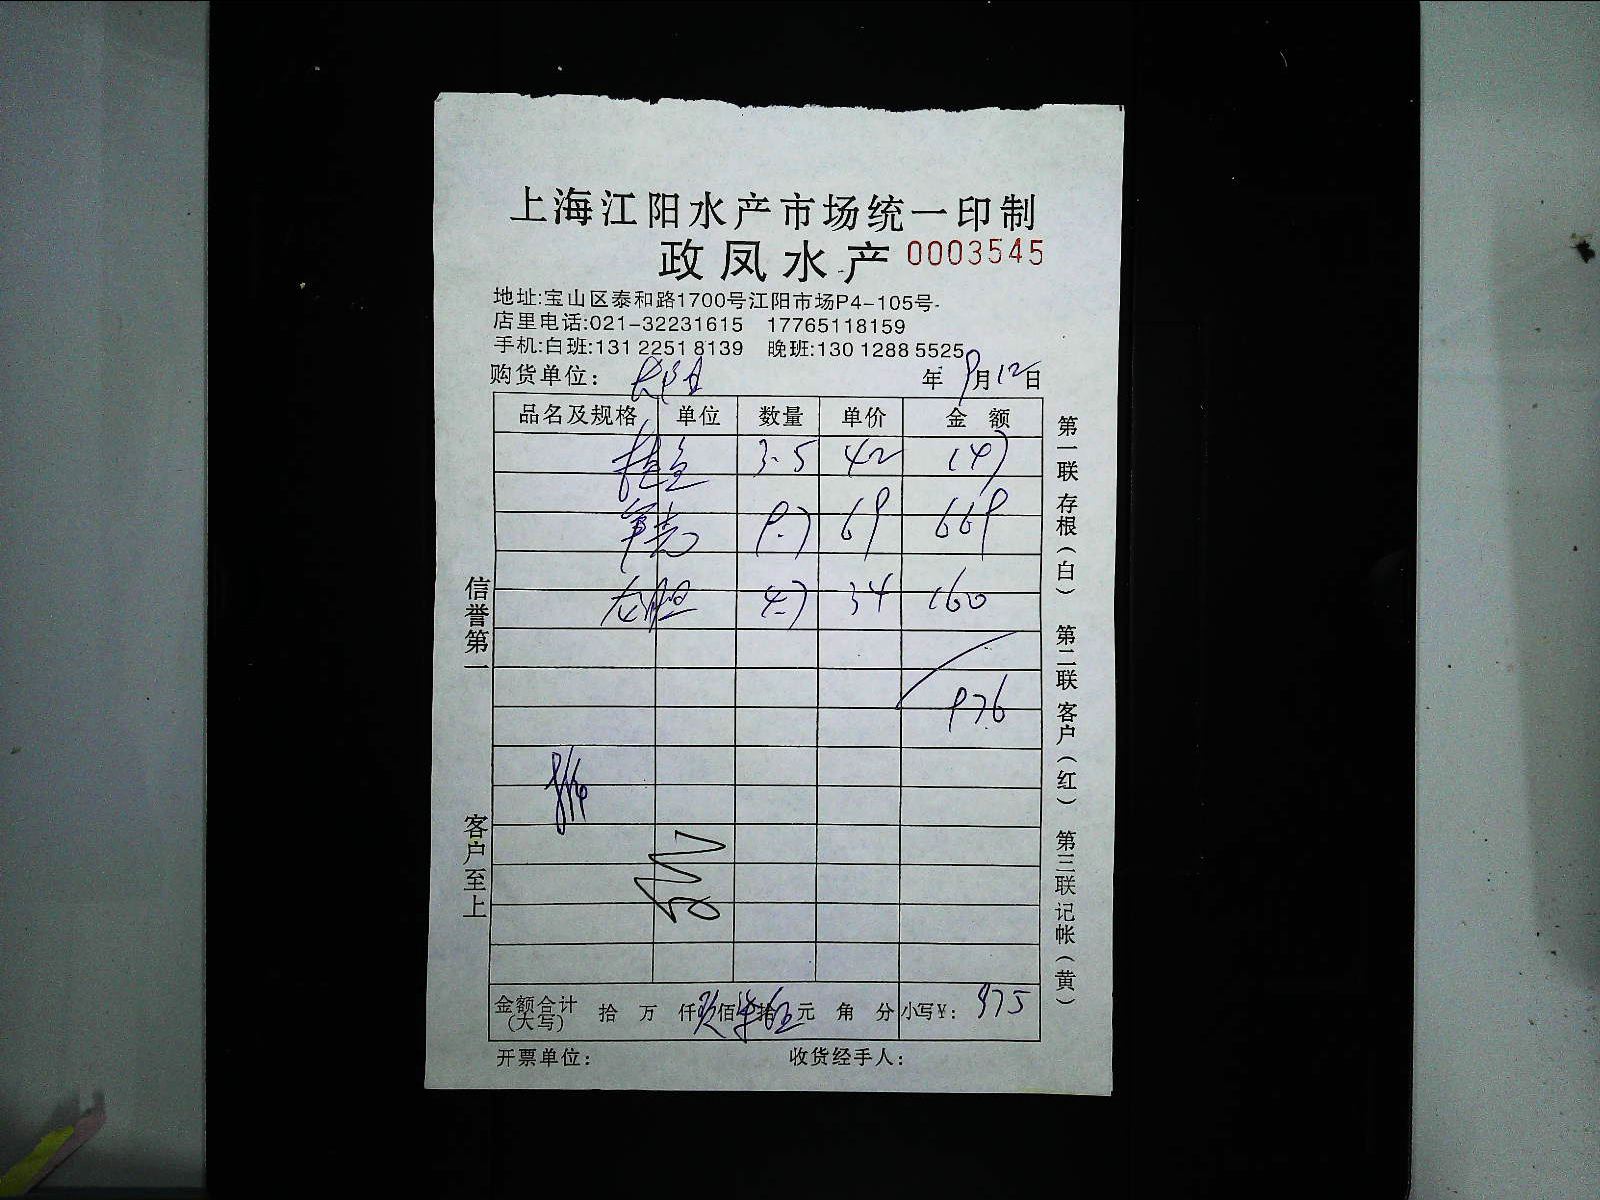 上海江阳水产市场统一印制
政凤水产 0003545
地址:宝山区泰和路1700号江阳市场P4-105号
店里电话:021-32231615 17765118159
手机:白班:131 2251 8139 晚班:130 1288 5525
购货单位: 年 9月12日
品名及规格 单位 数量 单价 金额
桂鱼 3.5 42 147
9.7 69 669
龙胆 4.7 34 160
976
金额合计(大写) 拾 万 仟玖佰柒拾伍元 角 分 小写¥: 975
开票单位: 收货经手人:
信誉第一
客户至上
第一联 存根(白) 第二联 客户(红) 第三联 记帐(黄)